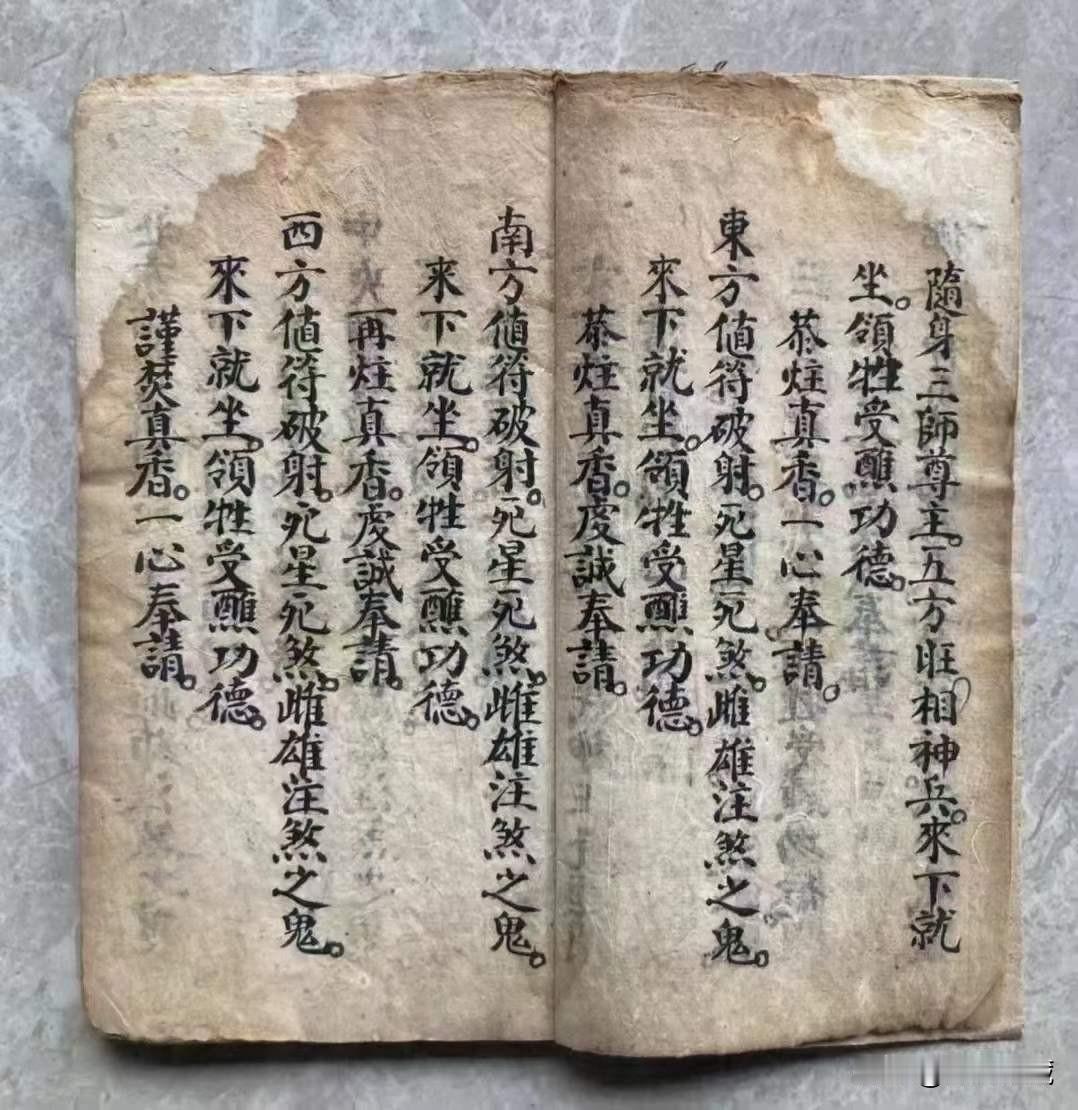 隨身三師尊主。五方旺相神兵。來下就
坐。領牲受醮功德。
恭炷真香。一心奉請。
東方値符破射。死星死煞。雌雄注煞之鬼。
來下就坐。領牲受醮功德。
恭炷真香。虔誠奉請。
南方値符破射。死星死煞。雌雄注煞之鬼。
來下就坐。領牲受醮功德。
再炷真香。虔誠奉請。
西方値符破射。死星死煞。雌雄注煞之鬼。
來下就坐。領牲受醮功德。
謹焚真香。一心奉請。